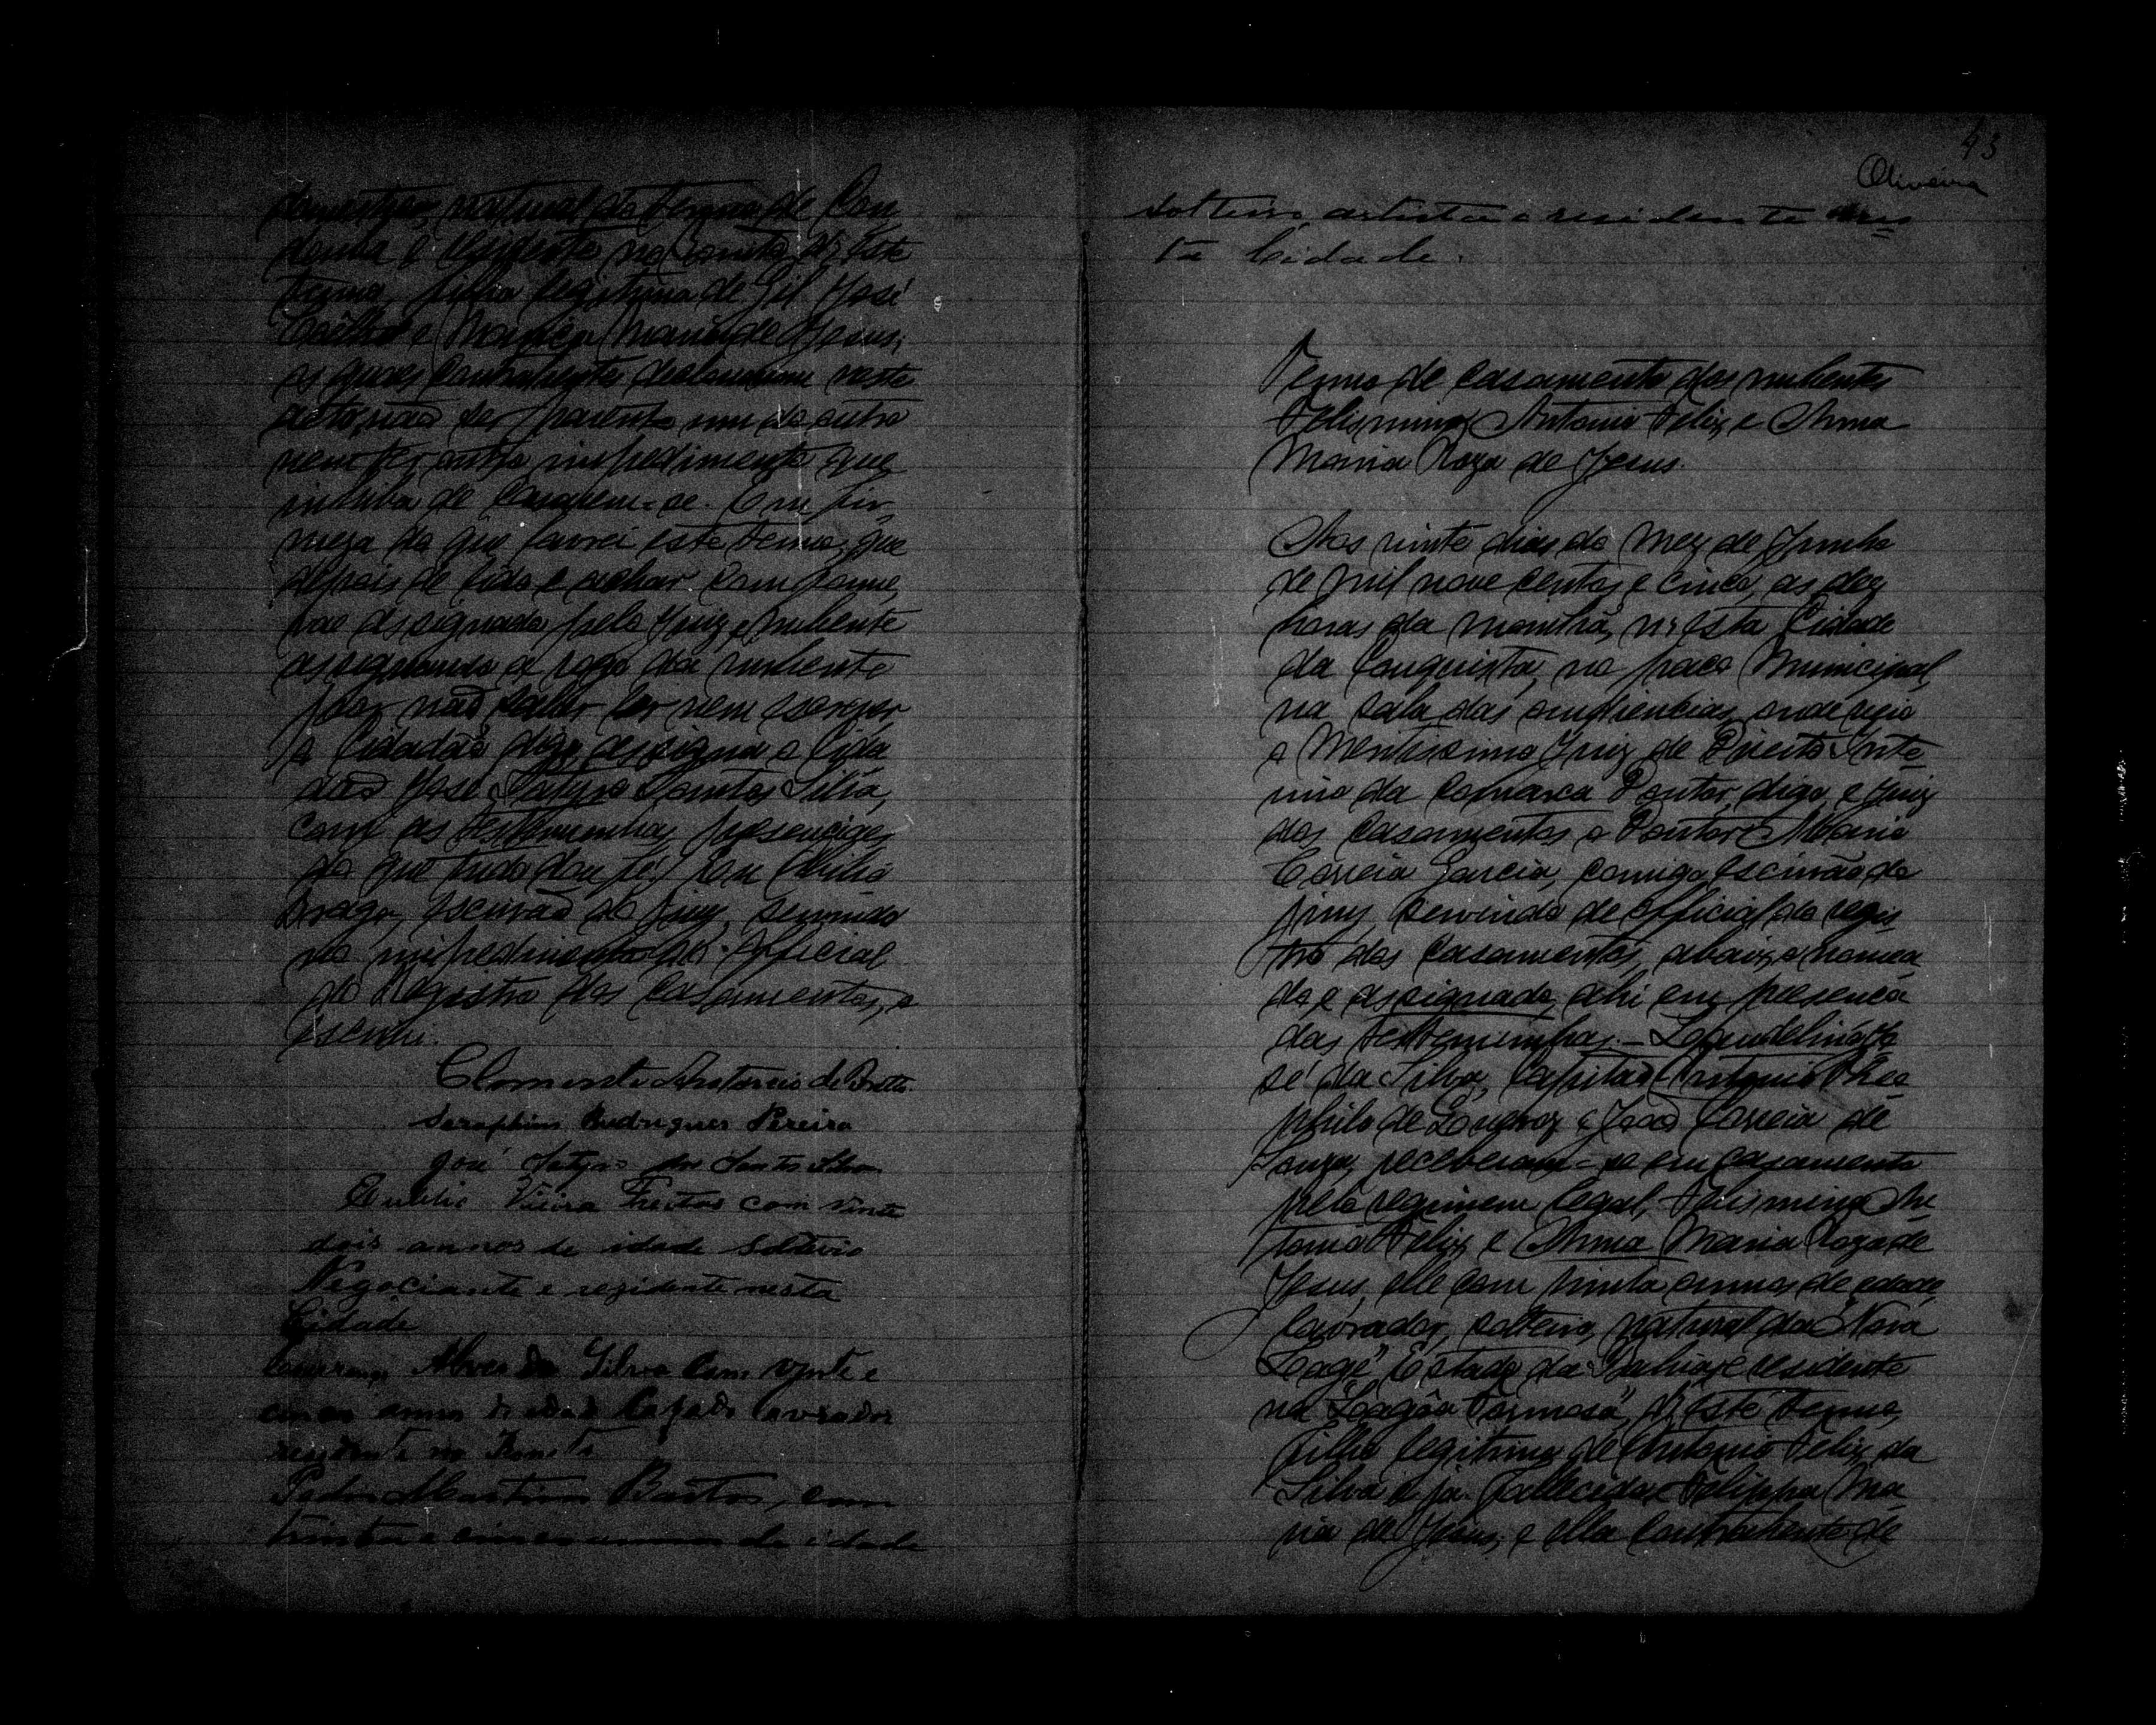 domestica, natural do termo de Con
deuba e residente no termo d'este
termo, filha legitima de Gil José
Coêlho e Maria de Jesus;
os quaes contrahentes declararam neste
acto não ser parente um do outro
nem ter outro impedimento que
inhiba de casarem-se. Em fir
meza do que lavrei este termo, que
depois de lido e achar conforme,
vae assignado pelo Juiz, e nubente
assignando a rogo da nubente
por não saber ler nem escrever
o Cidadão digo assigna o Cida
dão José Satyro Santos Silva,
com as testemunhas presenciaes
do que tudo dou fé. Eu
Braga, escrivão do jury, servindo
no impedimento do official
do Registro dos Casamentos, o
escrevi.
Clemente de Britto
Seraphim Rodrigues Pereira
José Satyro dos Santos Silva
Vieira Freitas com vinte
dois annos de idade solteiro
Negociante e rezidente nesta
Cidade
Alves da Silva com vinte e
cinco annos de idade Casado lavrador
residente no
Pedro Martins Bastos, com
trinta e cinco annos de idade
43
Oliveira
solteiro, artista e residente nes
ta Cidade.
Termo de casamento dos nubentes
Felismino Antonio Felix e Anna
Maria Roza de Jesus.
Aos vinte dias do mez de Junho
de mil nove centos e cinco, as dez
horas da manhã, n'esta Cidade
da Conquista, no paço Municipal,
na sala das audiencias, onde
o Meritissimo Juiz de Direito Inte
rino da Comarca Doutor, digo, e Juiz
dos casamentos o Doutor Mario
Correia Garcia, comigo escrivão do
jury, servindo de official do regis
tro dos casamentos, abaixo nomea
do e assignado, ahi em presença
das testemunhas:- José
da Silva, Capitão Antonio Theo
philo de e João Correia de
Souza, receberam-se em casamento
pelo regimem legal, Felismino An
tonio Felix e Anna Maria Roza de
Jesus, elle com trinta annos de edade,
lavrador, solteiro, natural da "Nova
Lage" Estado da Bahia, e residente
na "Lagôa Formosa", d'este termo,
filho legitimo de Antonio Felix da
Silva e já fallecida Felippa Ma
ria de Jesus, e ella contrahente de